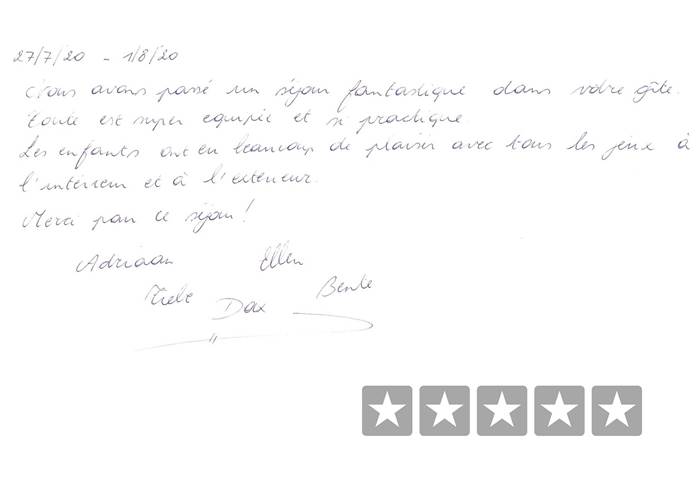 27/7/20 - 1/8/20
Nous avons passé un séjour fantastique dans votre gîte.
Toute est super equipée et si practique.
Les enfants ont eu beaucoup de plaisir avec tous les jeux à
l'intérieur et à l'extérieur.
Merci pour ce séjour!
Adriaan Ellen
Tiebe Dax Bente